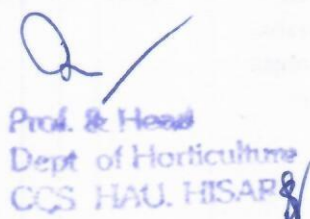 Prof. & Head
Dept of Horticulture
CCS HAU. HISAR